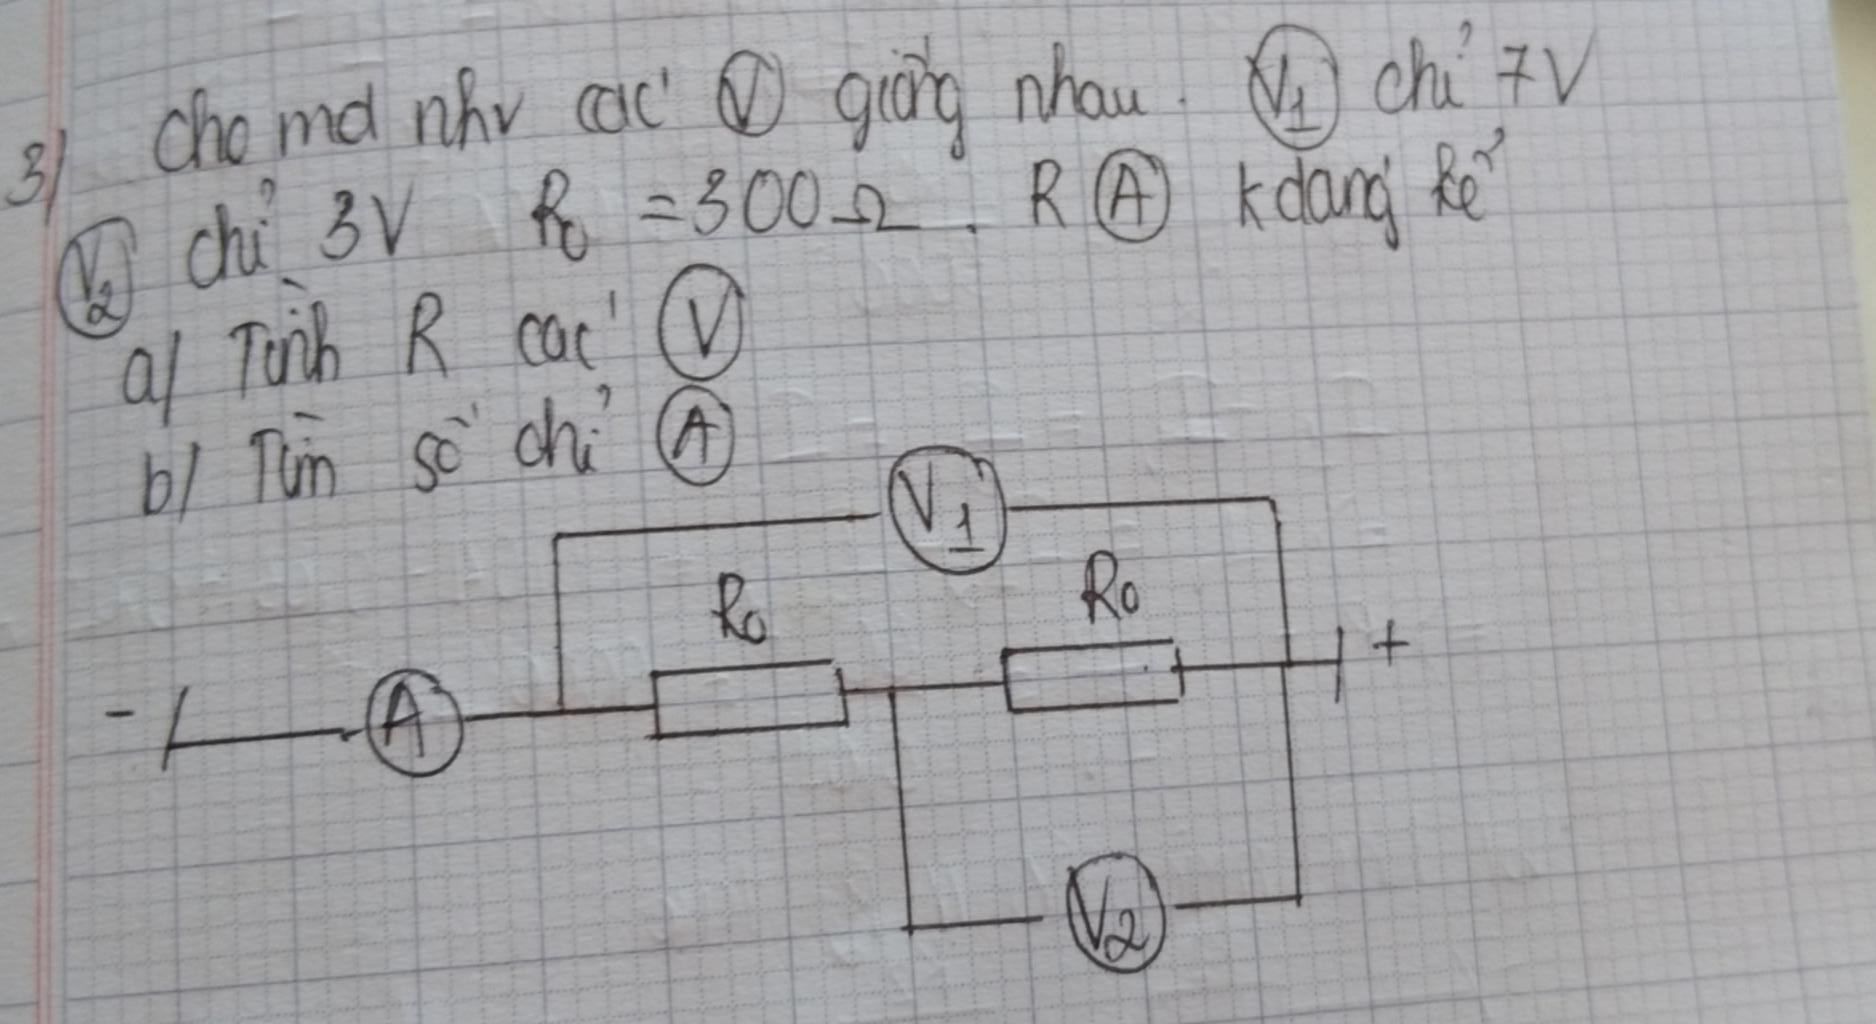 3) Cho mđ như các (V) giống nhau. (V1) chỉ 7V
(V2) chỉ 3V R0 = 300Ω. R (A) k đáng kể
a) Tính R các (V)
b) Tìm số chỉ (A)
V1
R0 R0
- A +
V2